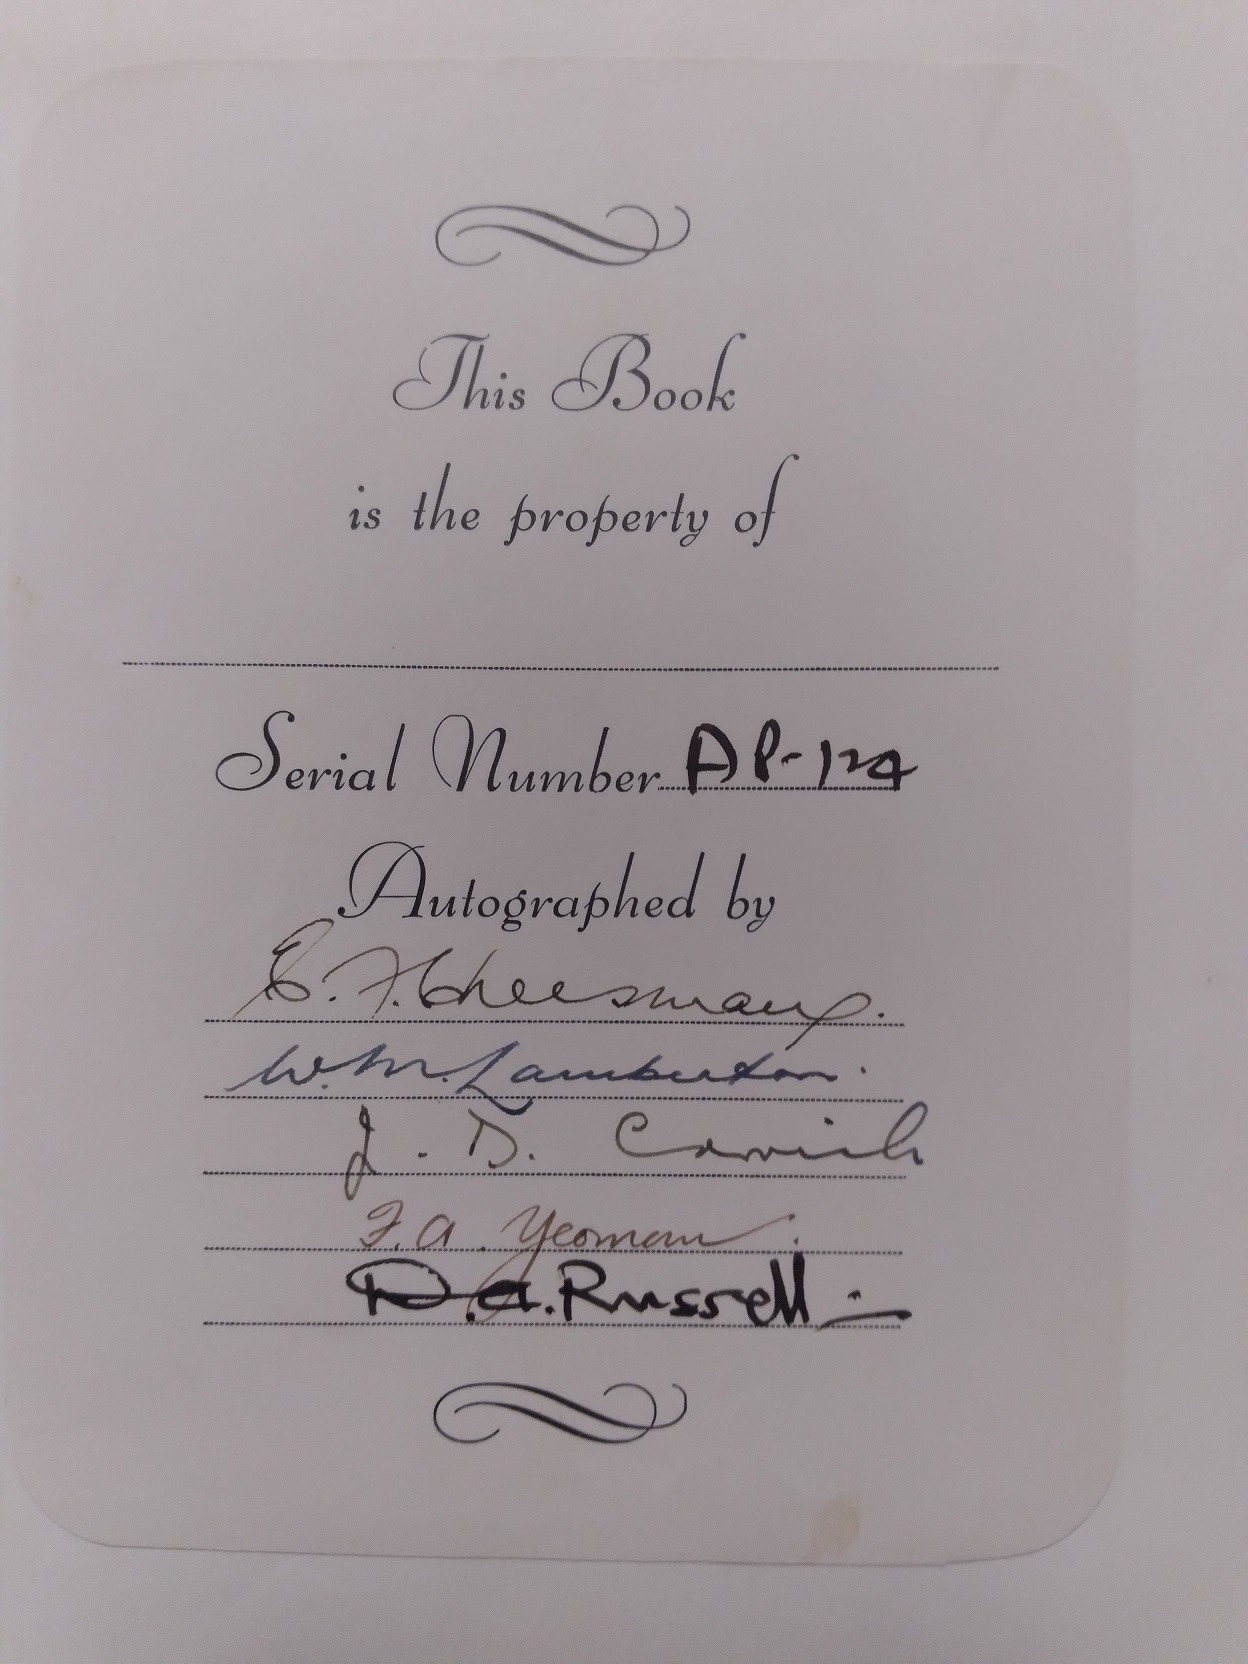 This Book
is the property of
Serial Number AP-124
Autographed by
E. F. Cheesman.
W. M. Lamberton.
J. D. Cornish
F. A. Yeoman.
D. A. Russell